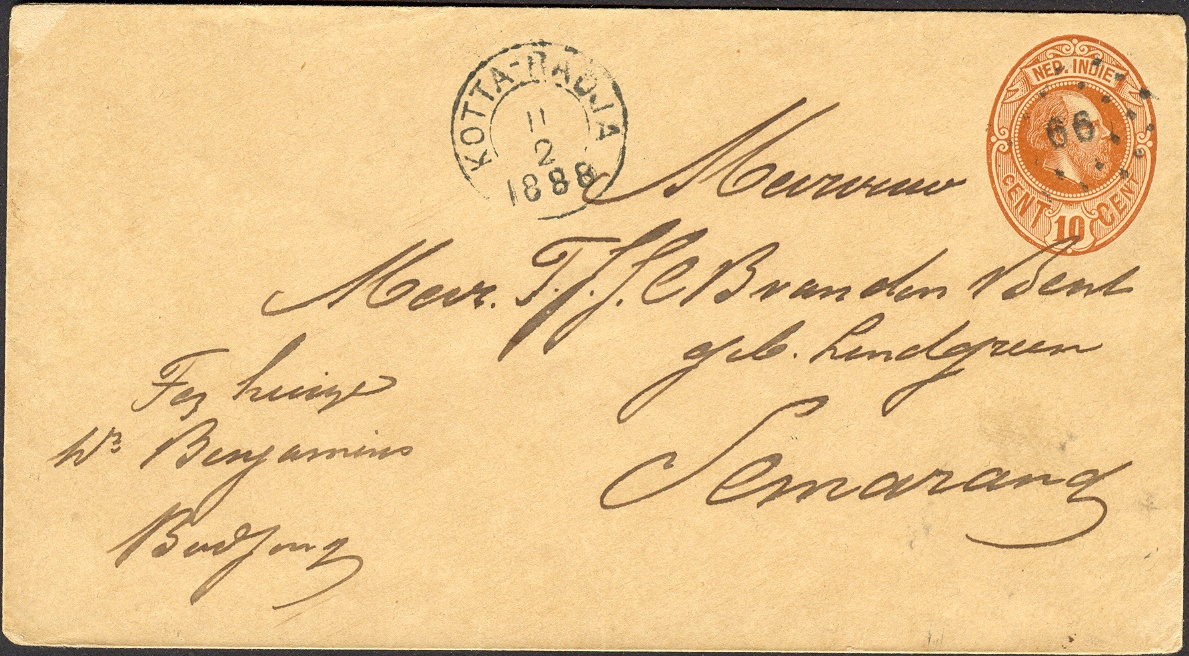 KOTTA-RADJA
11
2
1888
NED. INDIE
66
CENT 10 CENT
Mevrouw
Mevr. T. J. J. C B van den Bent
geb. Lindgreen
Semarang
Ten huize
We Benjamins
Bodjong